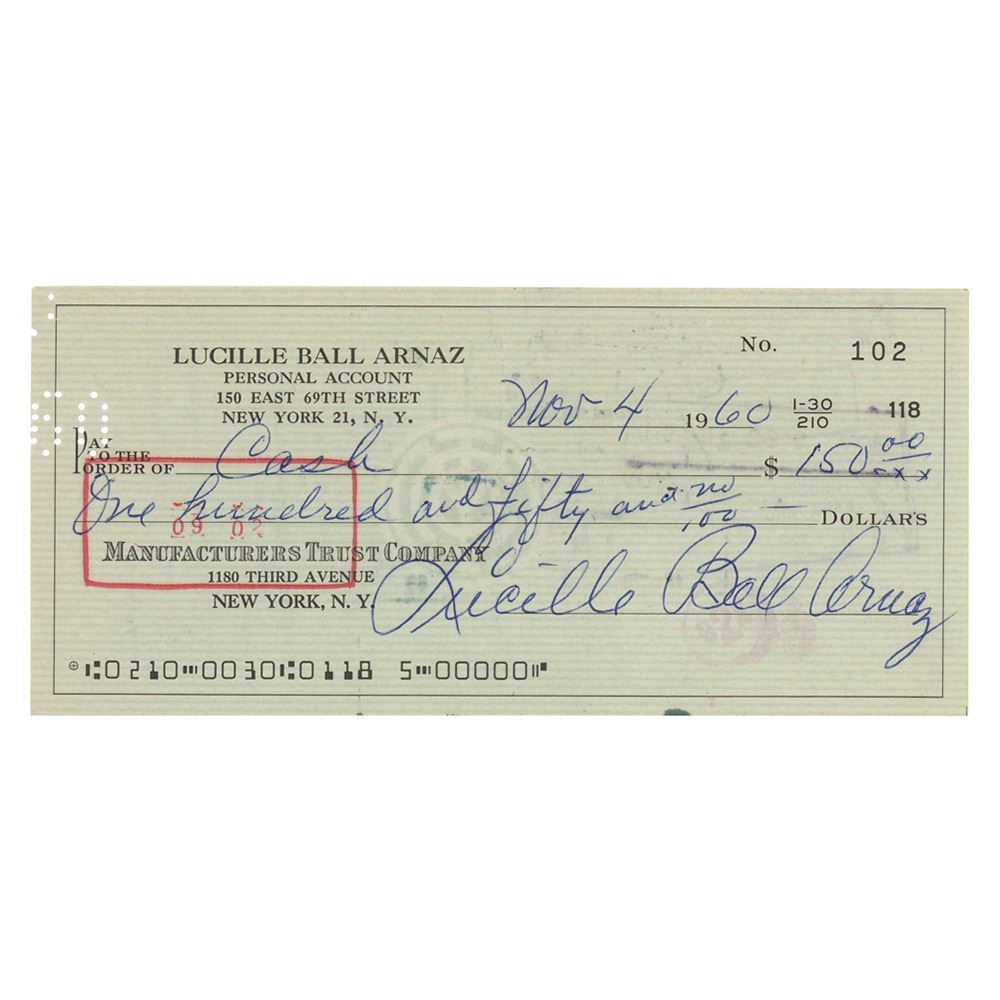 LUCILLE BALL ARNAZ
PERSONAL ACCOUNT
150 EAST 69TH STREET
NEW YORK 21, N. Y.
No. 102
Nov 4 1960 1-30/210 118
PAY TO THE ORDER OF Cash $ 150 00/xx
One hundred and fifty and no/100 — DOLLARS
09 02
MANUFACTURERS TRUST COMPANY
1180 THIRD AVENUE
NEW YORK, N. Y.
Lucille Ball Arnaz
⑆0210⑉0030⑆0118 5⑉00000⑈